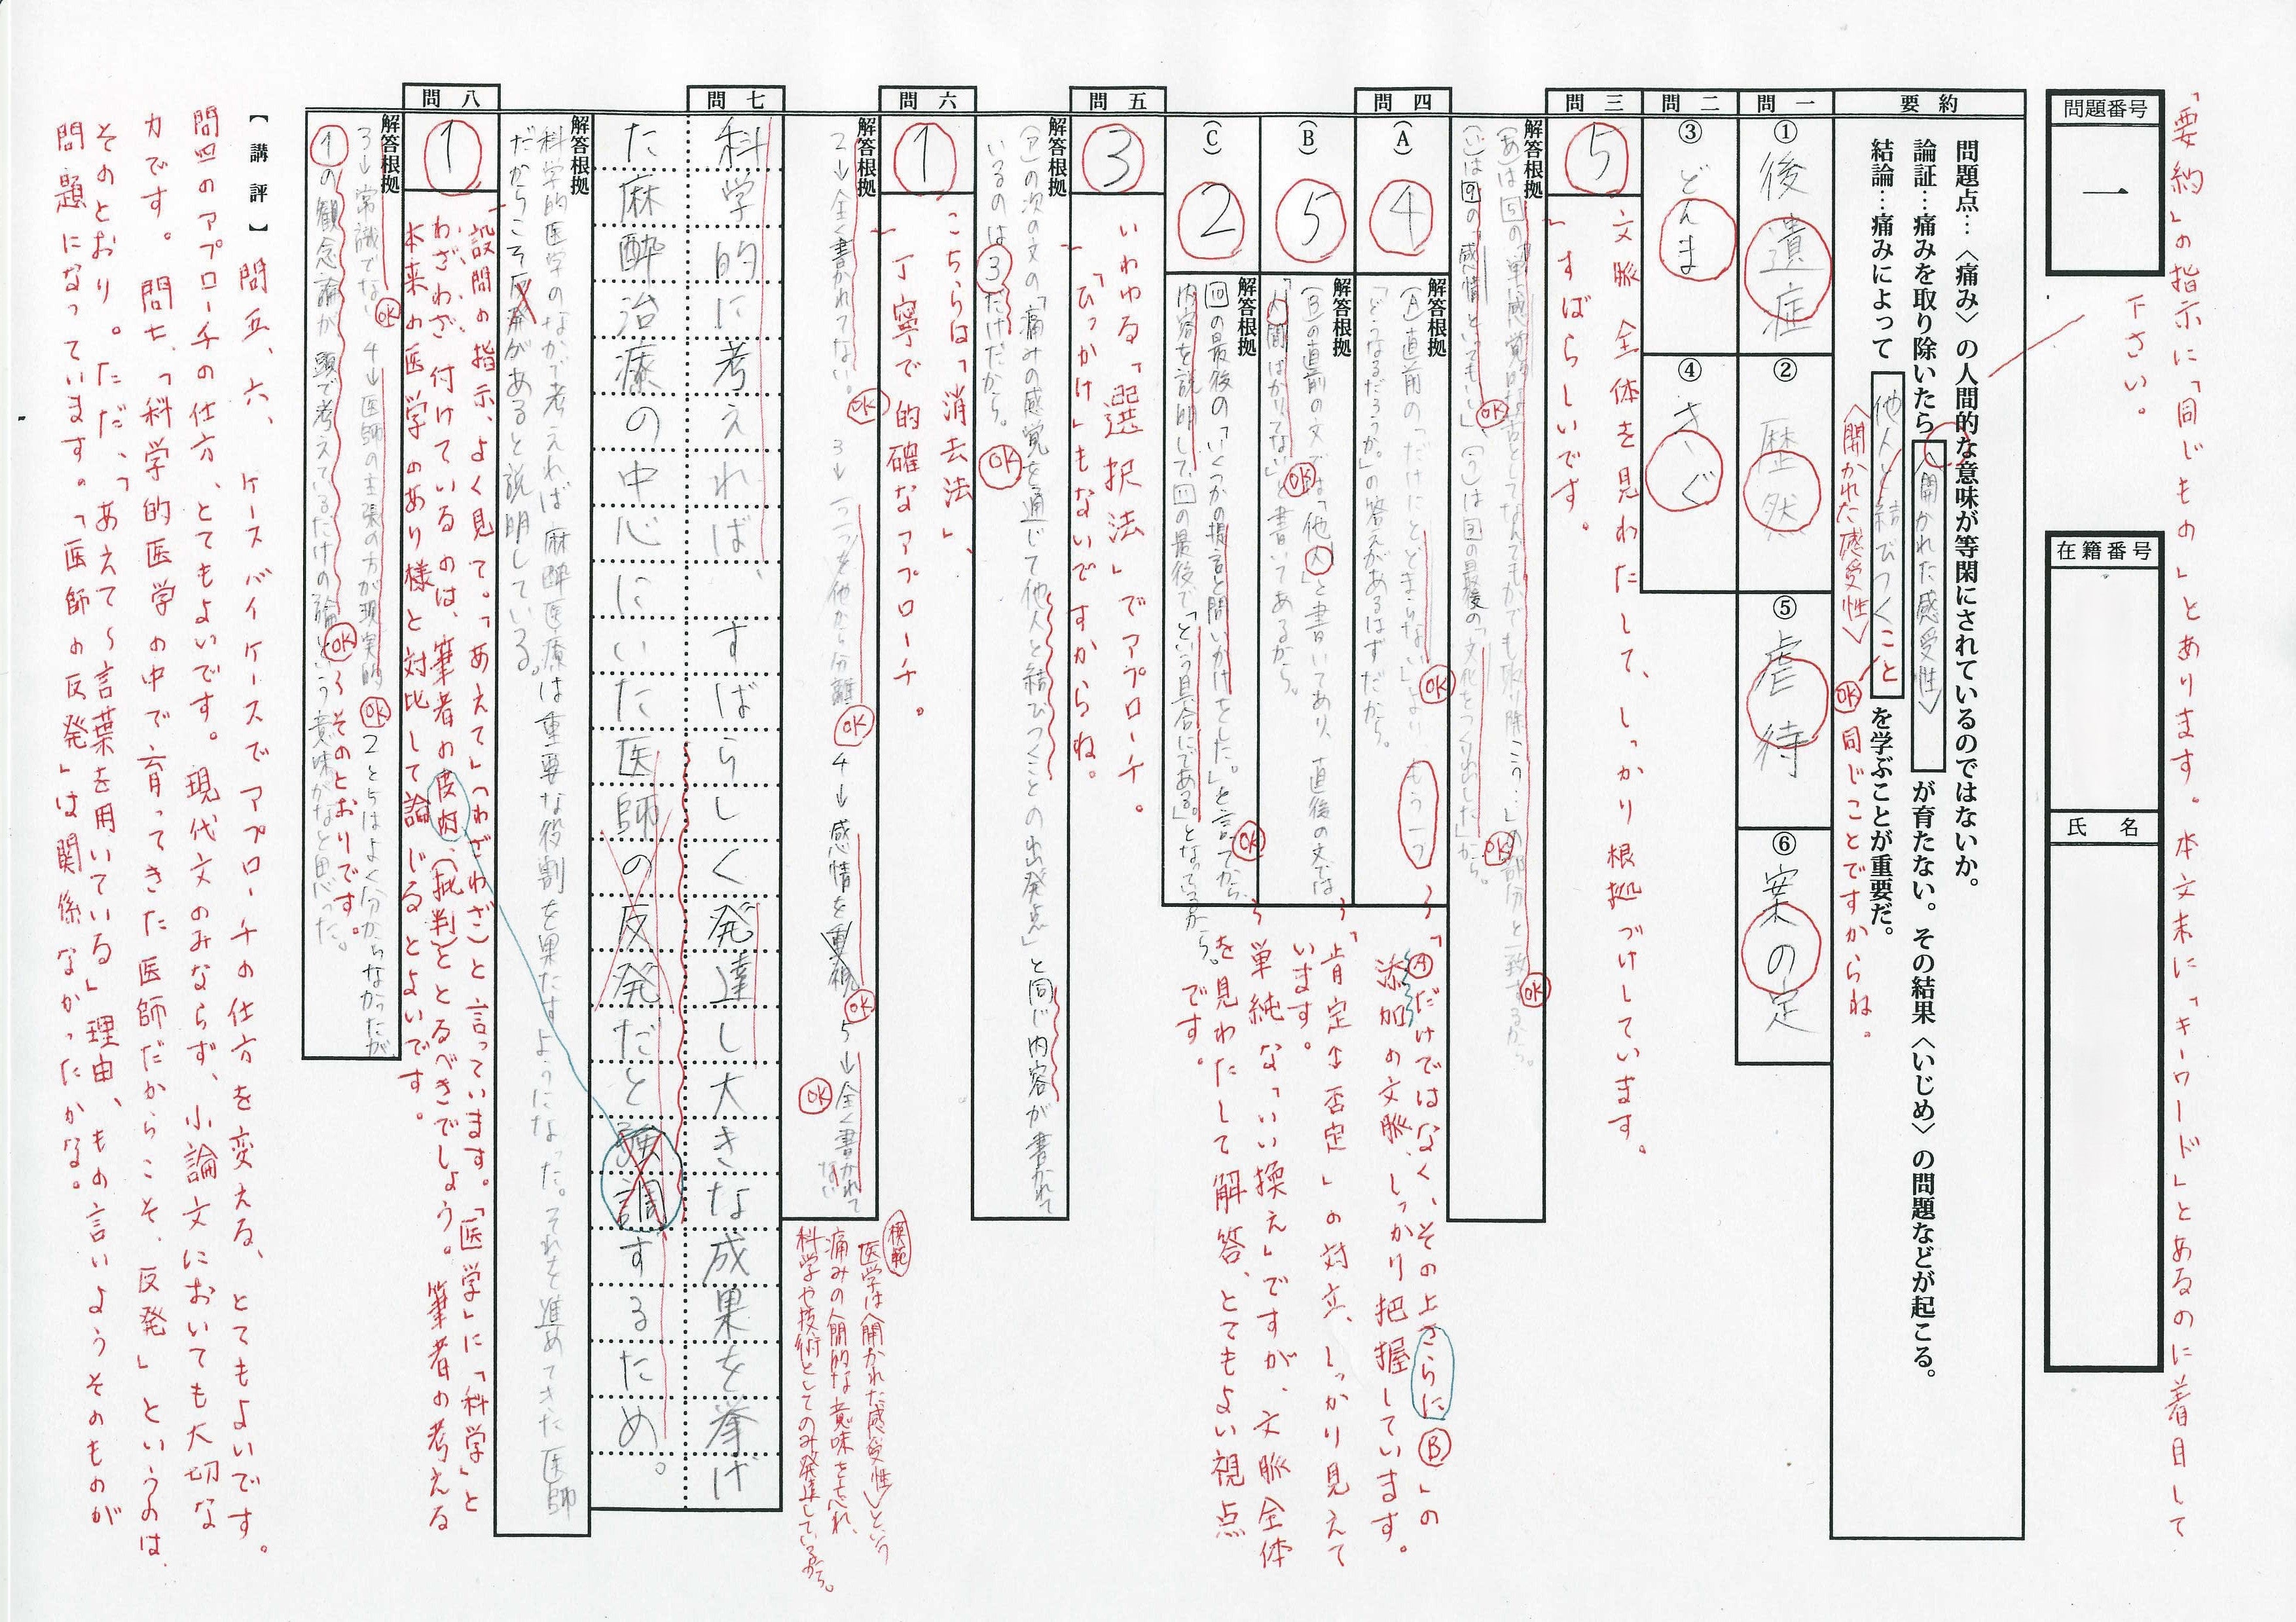 「要約」の指示に「同じもの」とあります。本文末に「キーワード」とあるのに着目して
下さい。
問題番号
一
在籍番号
氏名
要約
問題点…〈痛み〉の人間的な意味が等閑にされているのではないか。
論証…痛みを取り除いたら〈開かれた感受性〉が育たない。その結果〈いじめ〉の問題などが起こる。
結論…痛みによって他人と結びつくことを学ぶことが重要だ。
〈開かれた感受性〉OK 同じことですからね。
問一
①後遺症
②歴然
⑤虐待
⑥案の定
問二
③どんま
④さぐ
問三
5
文脈全体を見わたして、しっかり根拠づけしています。
すばらしいです。
解答根拠
(あ)は5の「単に感覚的な苦としてなんでもかでも取り除こう…」の部分と一致するから。OK
(い)は9の「感情といってもいい」OK、(う)は の最後の「文化をつくりだした」から。OK
問四
(A)
4
解答根拠
(A)直前の「だけにとどまらない」より もう一つ OK
「どうなるだろうか。」の答えがあるはずだから。
「Aだけではなく、その上さらにB」の
添加の文脈、しっかり把握しています。
(B)
5
解答根拠
(B)の直前の文では「他人」と書いてあり、直後の文では
「人間ばかりでない」と書いてあるから。OK
「肯定⇔否定」の対立、しっかり見えて
います。
(C)
2
解答根拠
10の最後の「いくつかの提言と問いかけをした。」と言ってから、OK
内容を説明して、11の最後で「という具合にである。」となっているから。
単純な「いい換え」ですが、文脈全体
を見わたして解答、とてもよい視点
です。
問五
3
いわゆる「選択法」でアプローチ。
「ひっかけ」もないですからね。
解答根拠
(ア)の次の文の「痛みの感覚を通じて他人と結びつくことの出発点」と同じ内容が書かれて
いるのは③だけだから。OK
問六
1
こちらは「消去法」、
丁寧で的確なアプローチ。
解答根拠
2→全く書かれてない。OK 3→一つを他から分離 OK 4→感情を重視 OK 5→全く書かれて
ない OK
模範
医学は〈開かれた感受性〉という
痛みの人間的な意味を忘れ、
科学や技術としてのみ発達しているから。
問七
科学的に考えれば、すばらしく発達し大きな成果を挙げ
た麻酔治療の中心にいた医師の反発だと強調するため。
解答根拠
科学的医学のなかで考えれば麻酔医療は重要な役割を果たすようになった。それを進めてきた医師
だからこそ反発があると説明している。
問八
1
設問の指示、よく見て。「あえて」(わざわざ)と言っています。「医学」に「科学」と
わざわざ付けているのは、筆者の皮肉、(批判)ととるべきでしょう。筆者の考える
本来の医学のあり様と対比して論じるとよいです。
解答根拠
3→常識でない OK 4→医師の主張の方が現実的 OK 2と5はよく分からなかったが
①の観念論が頭で考えているだけの論 OK という意味かなと思った。
そのとおりです。
【講評】
問五、六、ケースバイケースでアプローチの仕方を変える、とてもよいです。
問四のアプローチの仕方、とてもよいです。現代文のみならず、小論文においても大切な
力です。問七、「科学的医学の中で育ってきた医師だからこそ、反発」というのは、
そのとおり。ただ、「あえて〜言葉を用いている」理由、もの言いようそのものが
問題になっています。「医師の反発」は関係なかったかな。